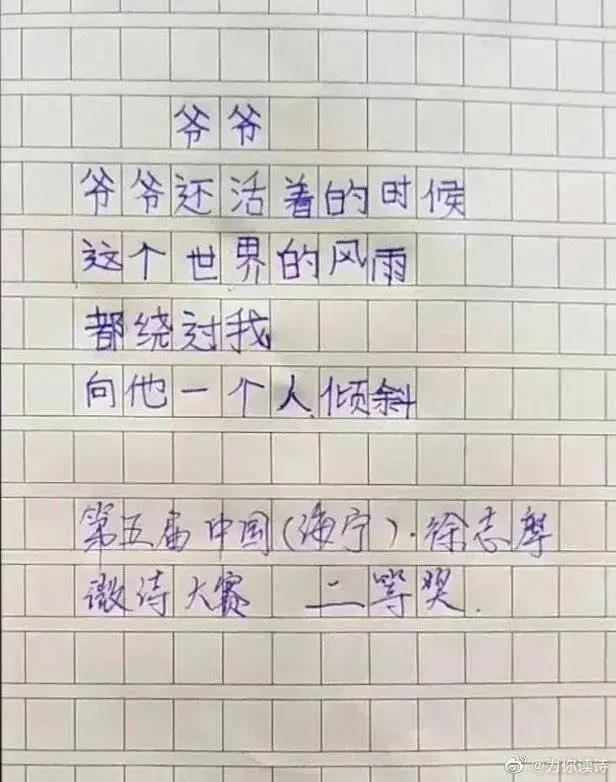 爷爷
爷爷还活着的时候
这个世界的风雨
都绕过我
向他一个人倾斜
第五届中国(海宁)·徐志摩
微诗大赛 二等奖.
@为你读诗